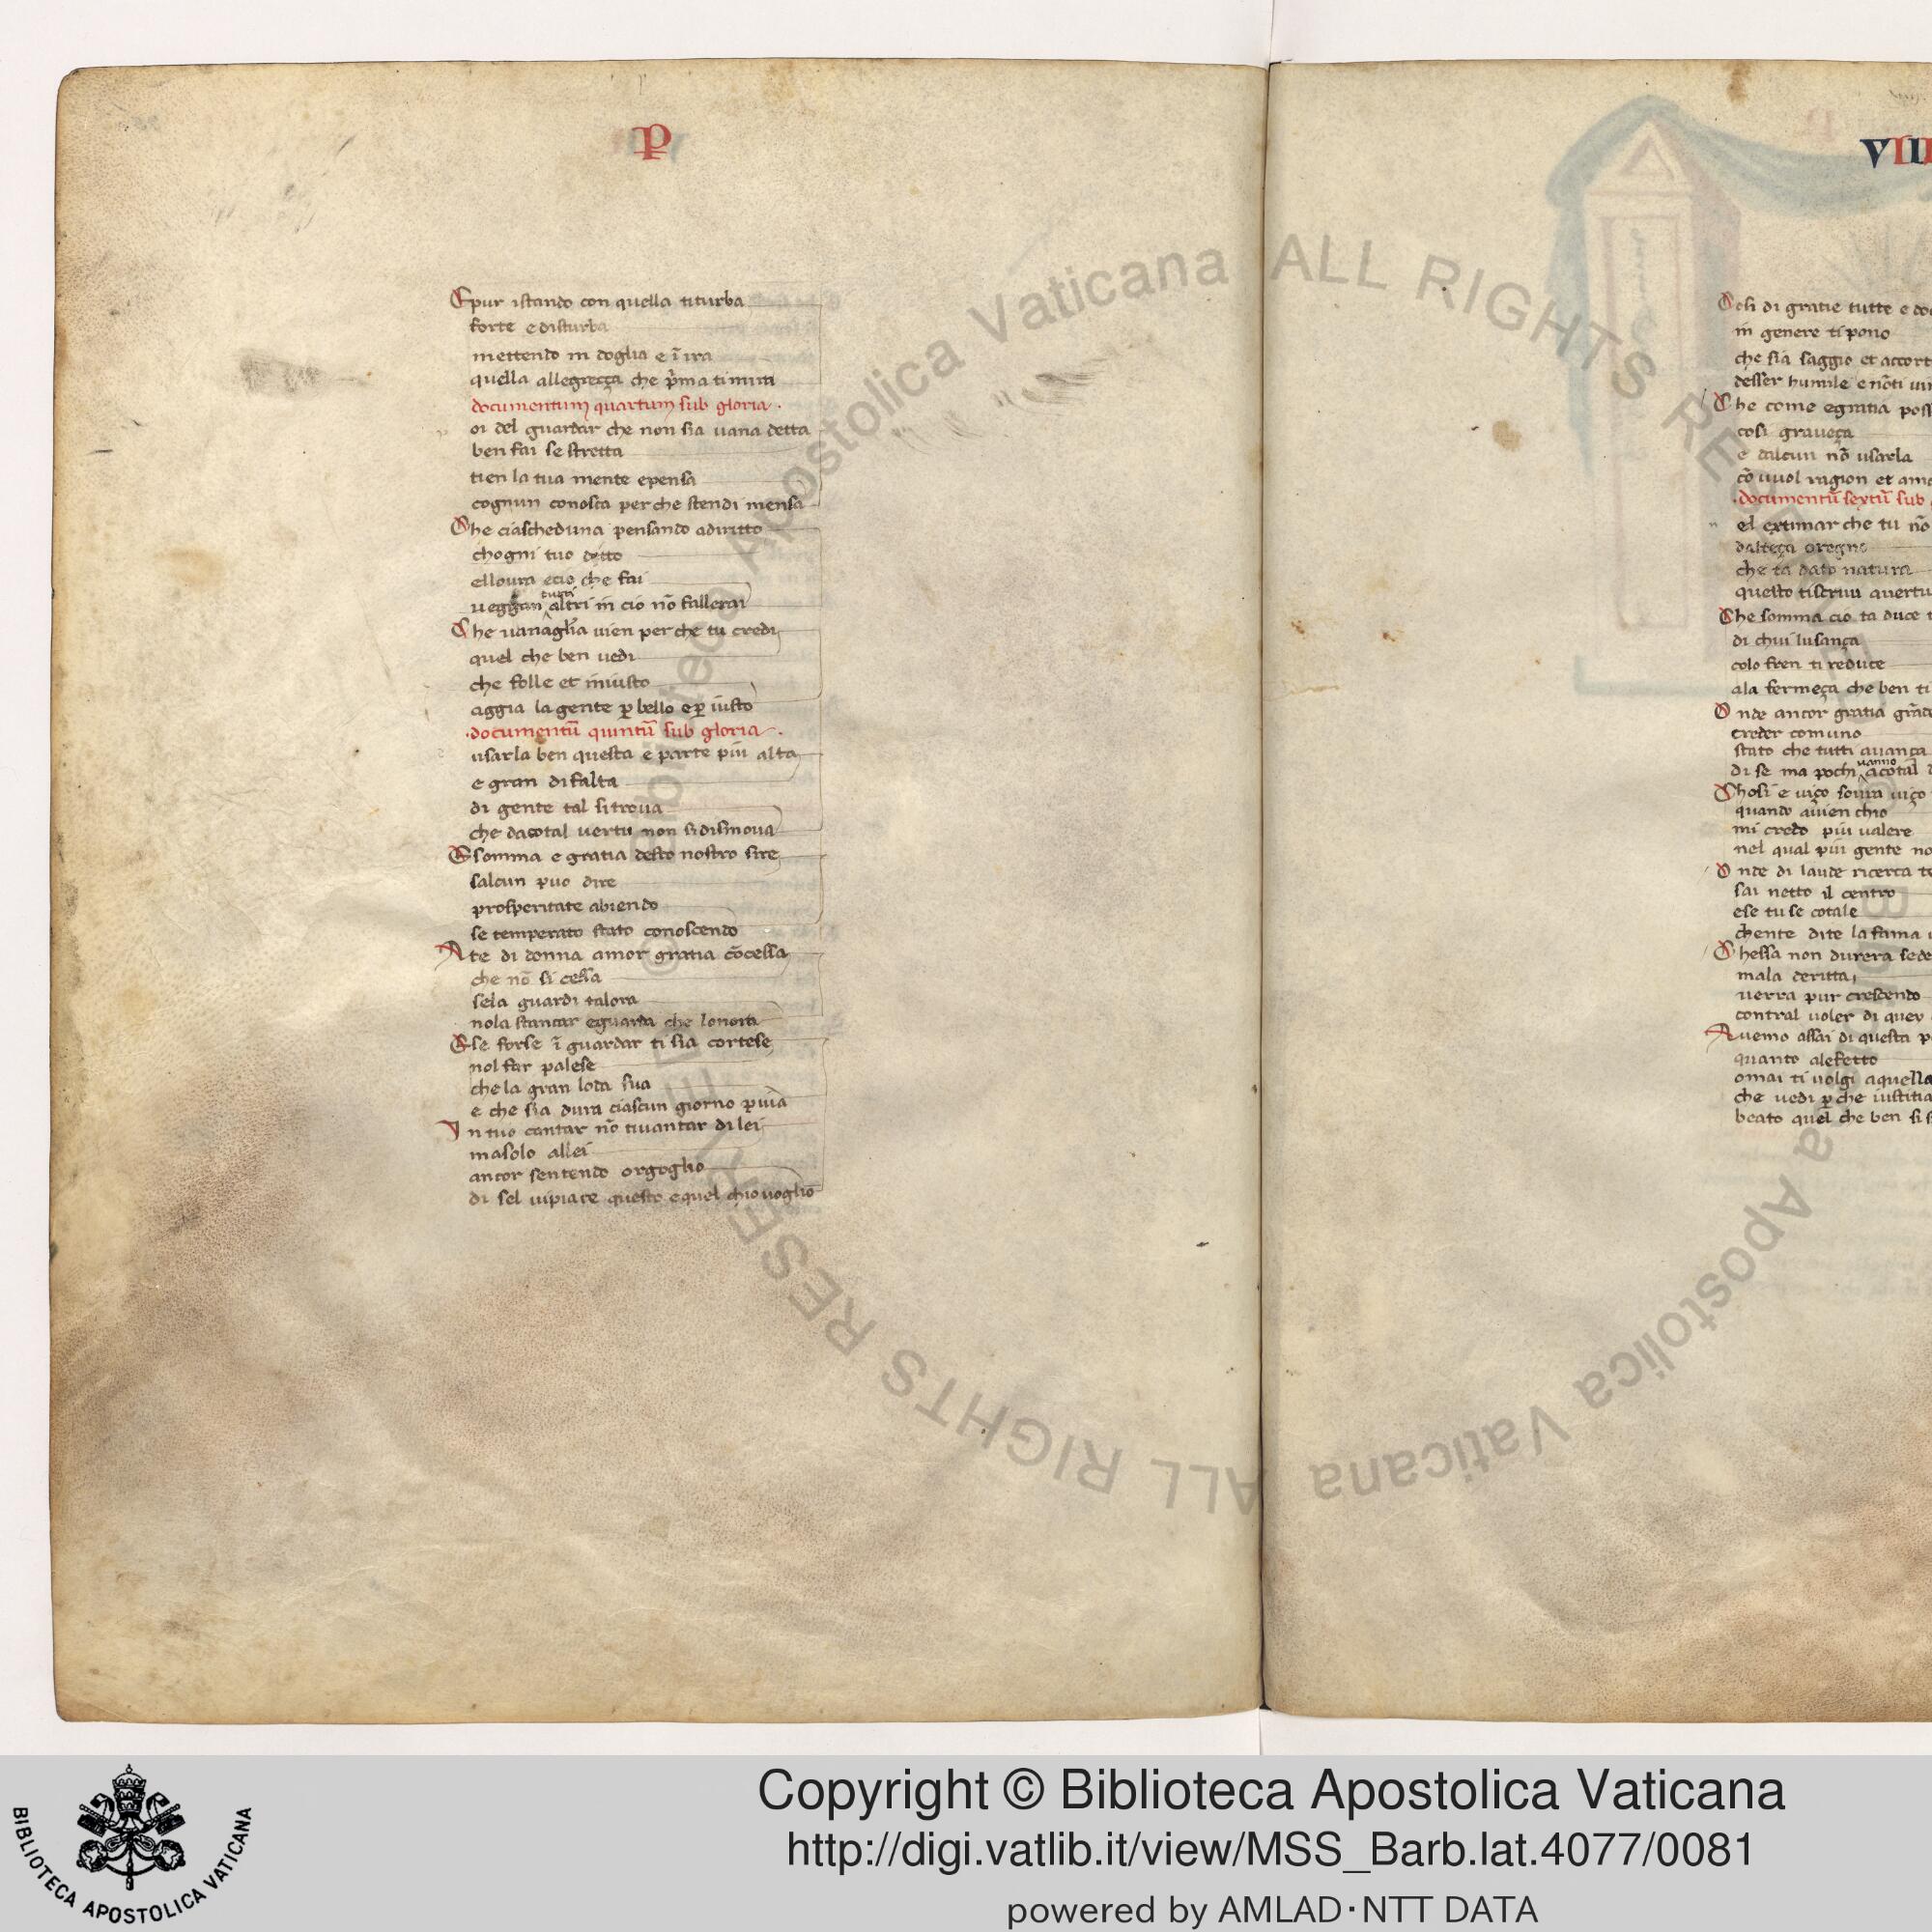 Epur istando con quella titurba
forte e disturba
mettendo in doglia e ĩ ira
quella allegreçça che p̃ma timiti
documentum quartum sub gloria.
or del guardar che non sia uana detta
ben fai se stretta
tien la tua mente epensa
cognun conosca perche stendi mensa
Che ciascheduna pensando adiritto
chogni tuo detto
elloura ecio che fai
ueggan tutti altri in cio nõ fallerai
Che uanagl̃ia uien perche tu credi
quel che ben uedi
che folle et iniusto
aggia la gente ꝑ bello eꝑ iusto
.documentũ quintũ sub gloria.
usarla ben questa e parte piu alta
e gran difalta
di gente tal si troua
che dacotal uertu non si dismoua
E somma e gratia desto nostro sire
salcun puo dire
prosperitate abiendo
se temperato stato conoscendo
A te di donna amor gratia cõcessa
che nõ si cessa
sela guardi talora
nola stancar eguarda che lonora
E se forse ĩ guardar ti sia cortese
nol far palese
che la gran loda sua
e che sia dura ciascun giorno
In tuo cantar nõ tiuantar di lei
masolo allei
ancor sentendo orgoglio
di sel uipiace questo equel chiouoglio
VIII
di gratie tutte e
in genere ti pono
che sia saggio et accort
desser humile e nõti
Che come egratia poss
cosi graueça
e dalcun nõ usarla
cõ uuol ragion et amo
.documentũ sextũ sub
el extimar che tu nõ
dalteça oregno
che ta dato natura
questo tiserua auertu
Che somma cio ta duce
di chui lusança
colo fren ti reduce
ala fermeça che ben ti
Onde ancor gratia grãde
creder comuno
stato che tutti auança
di se ma pochi uanno acotal
Chosi e uiço soura uiço
quando auien chio
mi credo piu ualere
nel qual piu gente no
Onde di laude ricerca te
sai netto il centro
ese tu se cotale
chente dite la fama
Chessa non durera sede
mala deritta
uerra pur crescendo
contral uoler di quey
Auemo assai di questa p
quanto alefetto
omai ti uolgi aquella
che uedi ꝑche iustitia
beato quel che ben si s
Copyright © Biblioteca Apostolica Vaticana
http://digi.vatlib.it/view/MSS_Barb.lat.4077/0081
powered by AMLAD·NTT DATA
BIBLIOTECA APOSTOLICA VATICANA